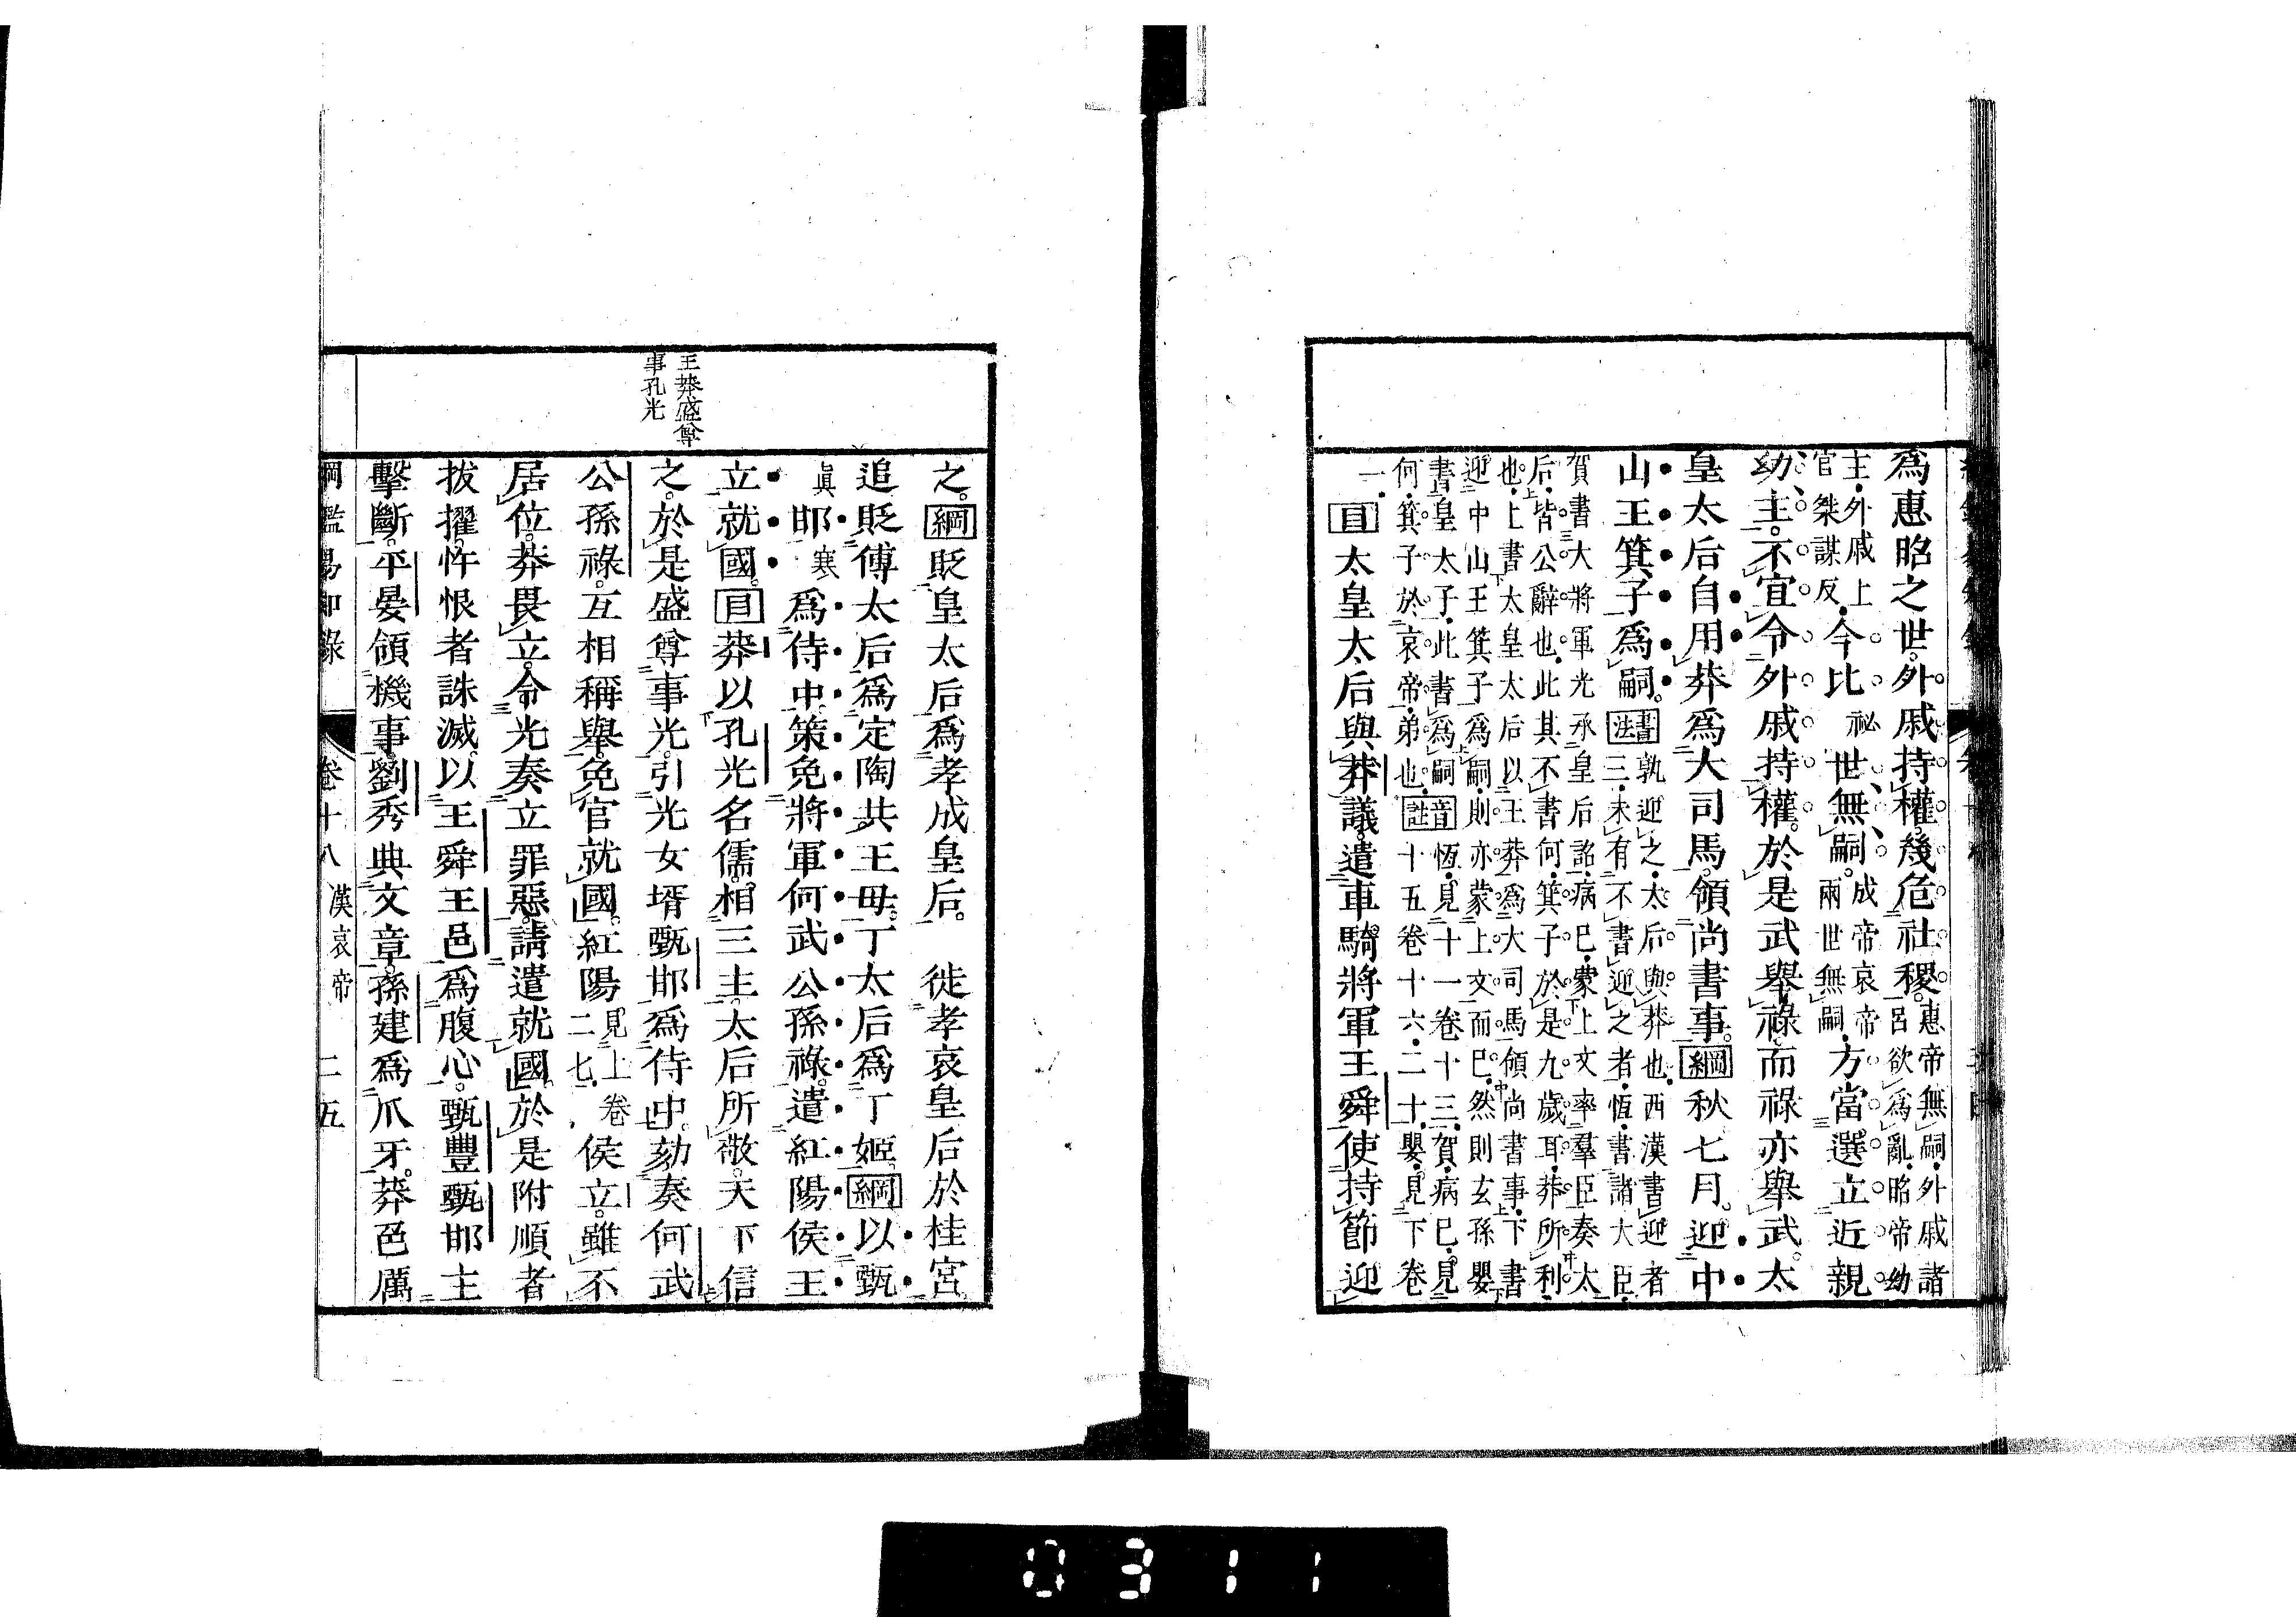 爲惠昭之世。外戚持權。幾危社稷。惠帝無嗣、外戚諸呂欲爲亂、昭帝幼
主、外戚上官桀謀反、今比祕世無嗣。成帝哀帝兩世無嗣、方當選立近親
幼主。不宜令外戚持權。於是武舉祿。而祿亦舉武。太
皇太后自用莽爲大司馬。領尚書事。綱秋七月。迎中
山王箕子爲嗣。書法孰迎之、太后與莽也、西漢書迎者三、未有不書迎之者、恆書諸大臣、
賀書大將軍光承皇后詔、病已、蒙上文率羣臣奏太
后、皆公辭也、此其不書何、箕子於是九歲耳、莽所利
也、上書太皇太后以王莽爲大司馬領尚書事、下書
迎中山王箕子爲嗣、則亦蒙上文而已、然則玄孫嬰
書皇太子、此書爲嗣何、箕子於哀帝、弟也、音註恆、見十一卷十三、賀、病已、見十五卷十六、二十、嬰、見下卷
一、目太皇太后與莽議。遣車騎將軍王舜。使持節迎
之。綱貶皇太后爲孝成皇后。 徙孝哀皇后於桂宮
追貶傅太后爲定陶共王母。丁太后爲丁姬。綱以甄
眞邯寒爲侍中。策免將軍何武公孫祿。遣紅陽侯王
立就國。目莽以孔光名儒。相三主。太后所敬。天下信
之。於是盛尊事光。引光女壻甄邯爲侍中。劾奏何武
公孫祿。互相稱舉。免官就國。紅陽見上卷二七、侯立。雖不
居位。莽畏立。令光奏立罪惡。請遣就國。於是附順者
拔擢。忤恨者誅滅。以王舜王邑爲腹心。甄豐甄邯主
擊斷。平晏領機事。劉秀典文章。孫建爲爪牙。莽色厲
王莽盛尊
事孔光
綱鑑易知錄 卷十八 漢哀帝 二五
0311